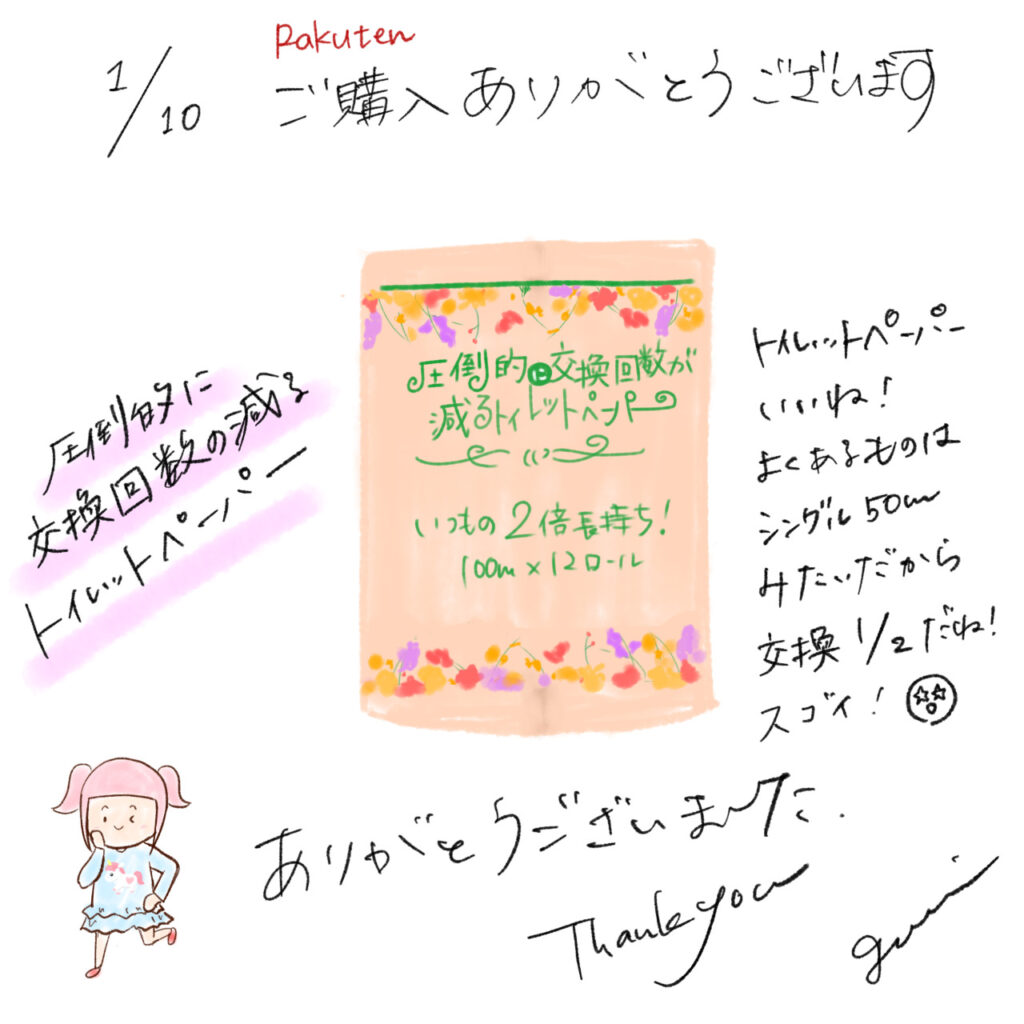 Rakuten
1/10
ご購入ありがとうございます
圧倒的に
交換回数の減る
トイレットペーパー
圧倒的に交換回数が
減るトイレットペーパー
いつもの2倍長持ち!
100m×12ロール
トイレットペーパー
いいね!
よくあるものは
シングル50m
みたいだから
交換1/2だね!
スゴイ!
ありがとうございました.
Thank you